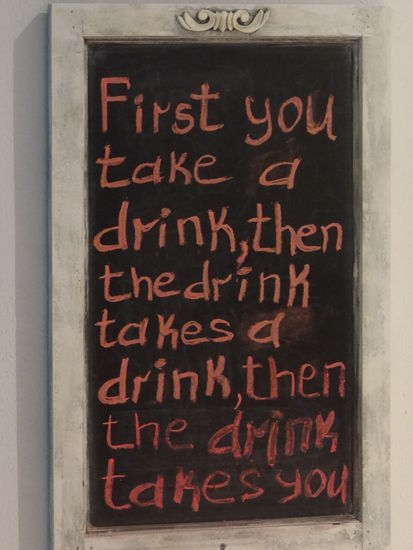 First you
take a
drink, then
the drink
takes a
drink, then
the drink
takes you